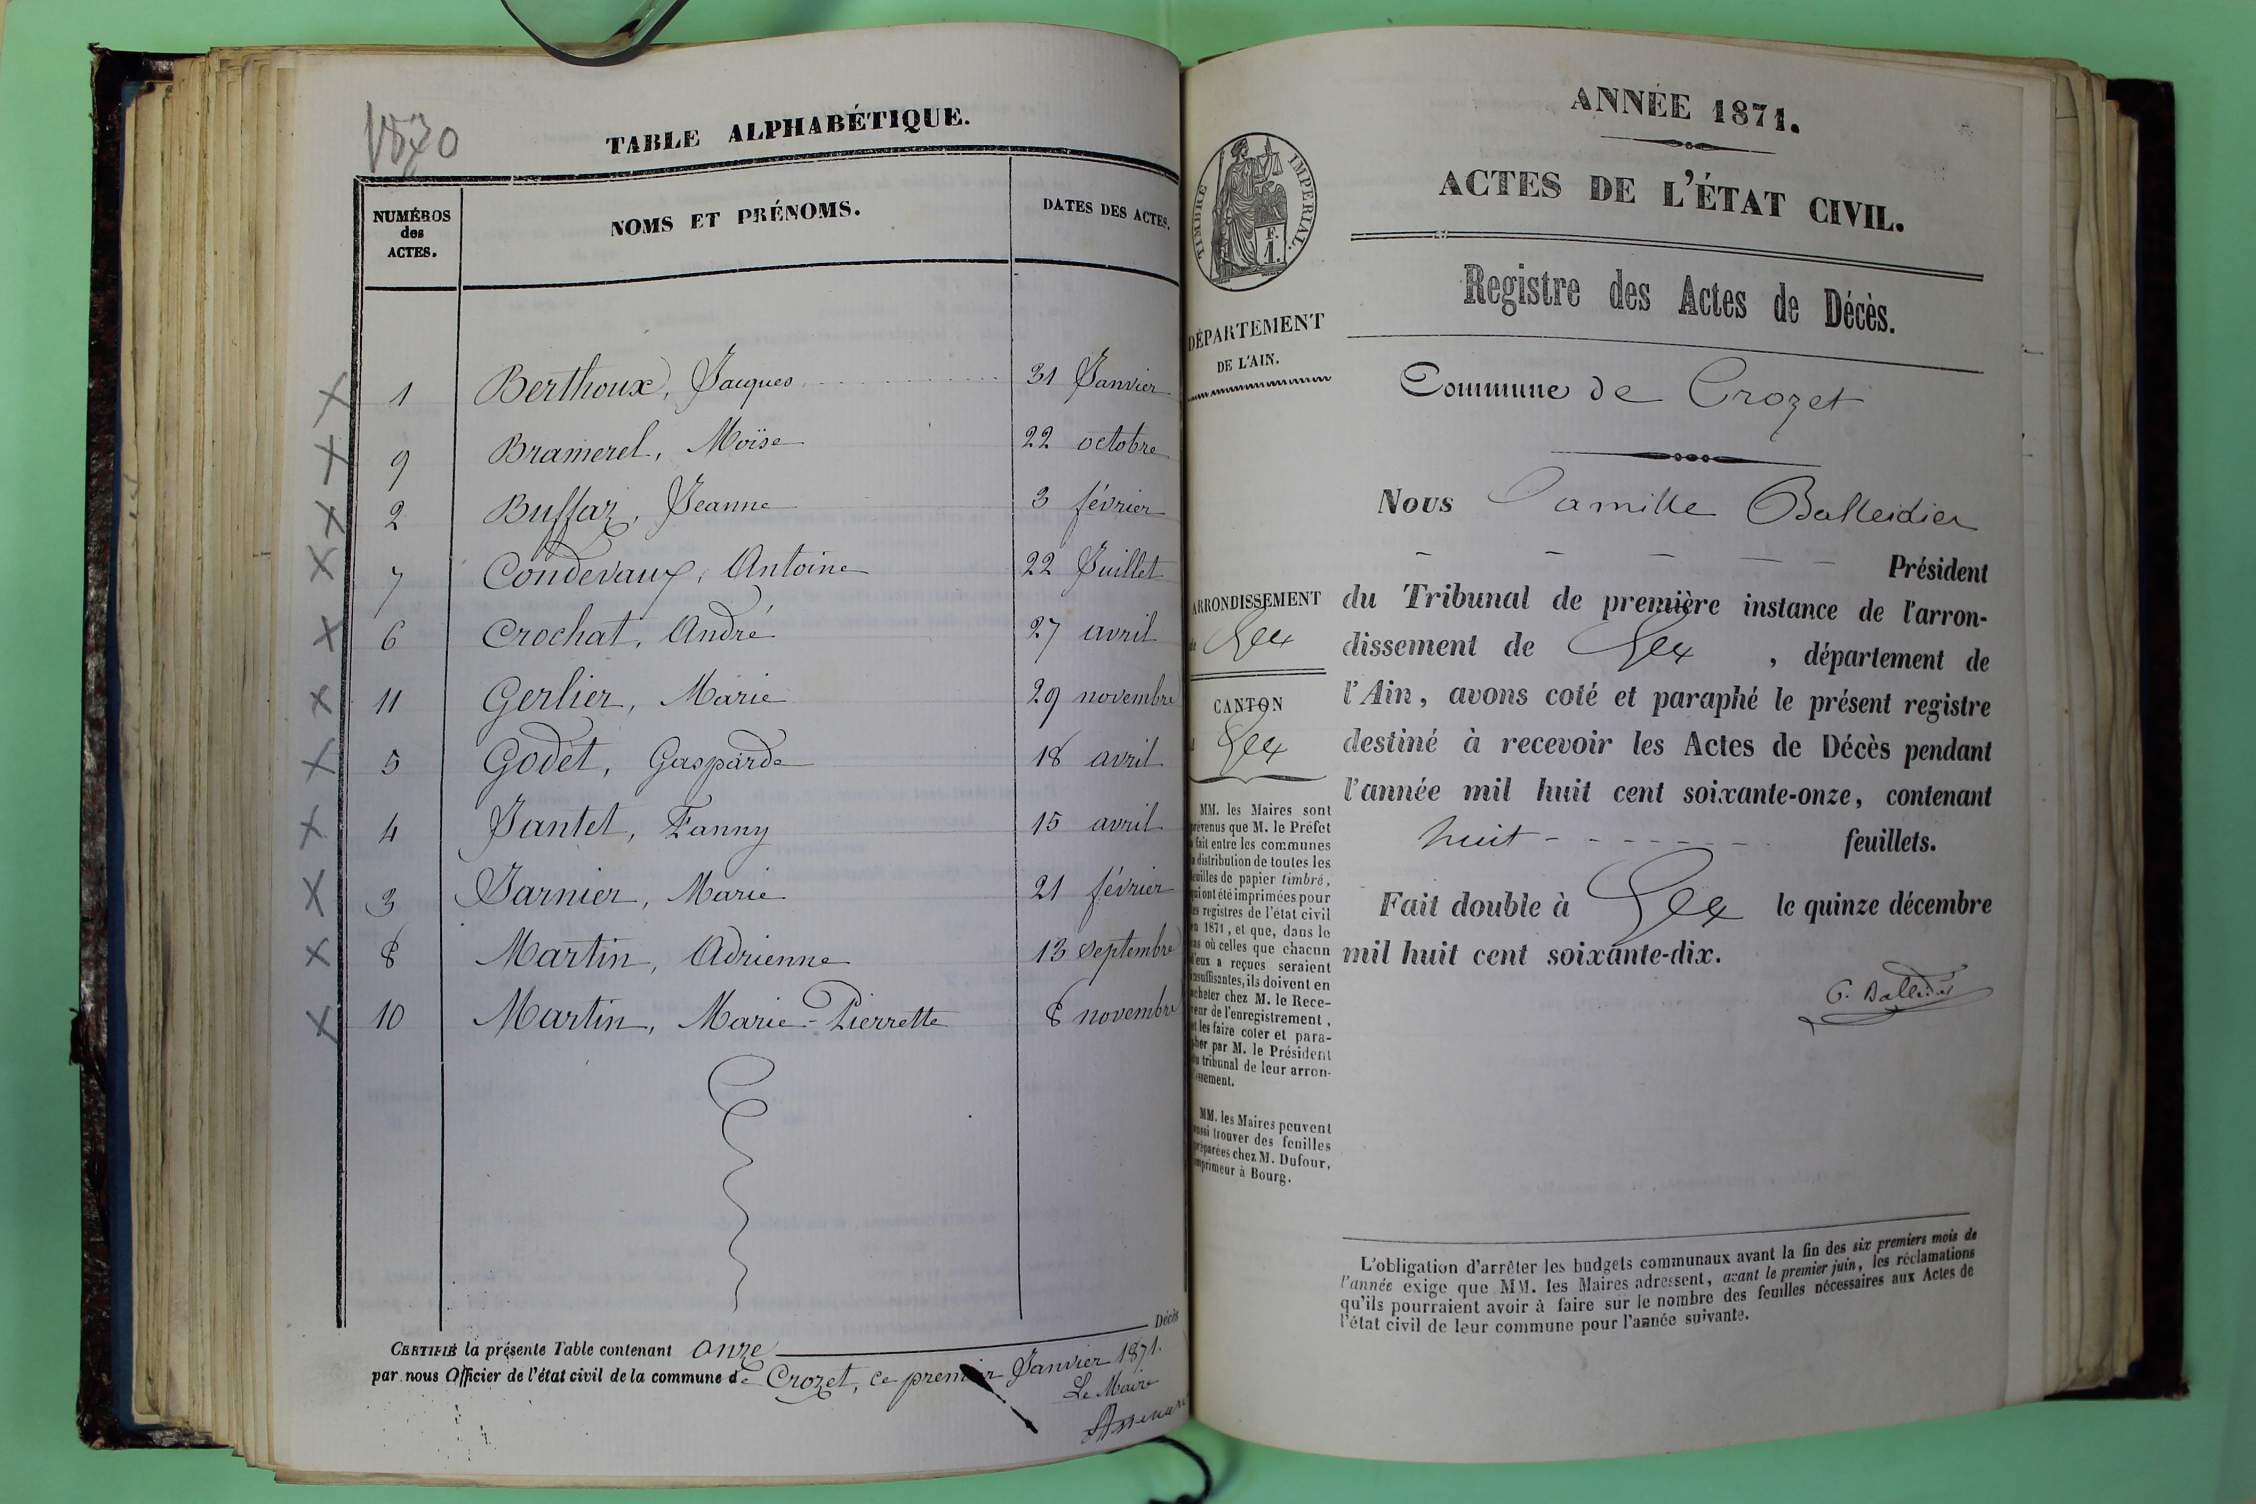 1870
TABLE ALPHABÉTIQUE.
NUMÉROS
des
ACTES.
NOMS ET PRÉNOMS.
DATES DES ACTES.
1 Berthoux, Jacques 31 Janvier
9 Bramerel, Moïse 22 octobre
2 Buffaz, Jeanne 3 février
7 Condevaux, Antoine 22 Juillet
6 Crochat, André 27 avril
11 Gerlier, Marie 29 novembre
5 Godet, Gasparde 18 avril
4 Jantet, Fanny 15 avril
3 Jarnier, Marie 21 février
8 Martin, Adrienne 13 septembre
10 Martin, Marie-Pierrette 8 novembre
CERTIFIÉ la présente Table contenant onze Décès
par nous Officier de l'état civil de la commune de Crozet, ce premier Janvier 1871.
Le Maire
ANNÉE 1871.
ACTES DE L'ÉTAT CIVIL.
Registre des Actes de Décès.
TIMBRE IMPÉRIAL.
F.
1.
DÉPARTEMENT
DE L'AIN.
Commune de Crozet
Nous Camille Balleidier
Président
du Tribunal de première instance de l'arron-
dissement de Gex, département de
l'Ain, avons coté et paraphé le présent registre
destiné à recevoir les Actes de Décès pendant
l'année mil huit cent soixante-onze, contenant
huit feuillets.
Fait double à Gex le quinze décembre
mil huit cent soixante-dix.
C. Balleidier
ARRONDISSEMENT
de Gex
CANTON
d Gex
MM. les Maires sont
prévenus que M. le Préfet
a fait entre les communes
la distribution de toutes les
feuilles de papier timbré,
qui ont été imprimées pour
les registres de l'état civil
en 1871, et que, dans le
cas où celles que chacun
d'eux a reçues seraient
insuffisantes, ils doivent en
acheter chez M. le Rece-
veur de l'enregistrement,
et les faire coter et para-
pher par M. le Président
du tribunal de leur arron-
dissement.
MM. les Maires peuvent
aussi trouver des feuilles
préparées chez M. Dufour,
imprimeur à Bourg.
L'obligation d'arrêter les budgets communaux avant la fin des six premiers mois de
l'année exige que MM. les Maires adressent, avant le premier juin, les réclamations
qu'ils pourraient avoir à faire sur le nombre des feuilles nécessaires aux Actes de
l'état civil de leur commune pour l'année suivante.